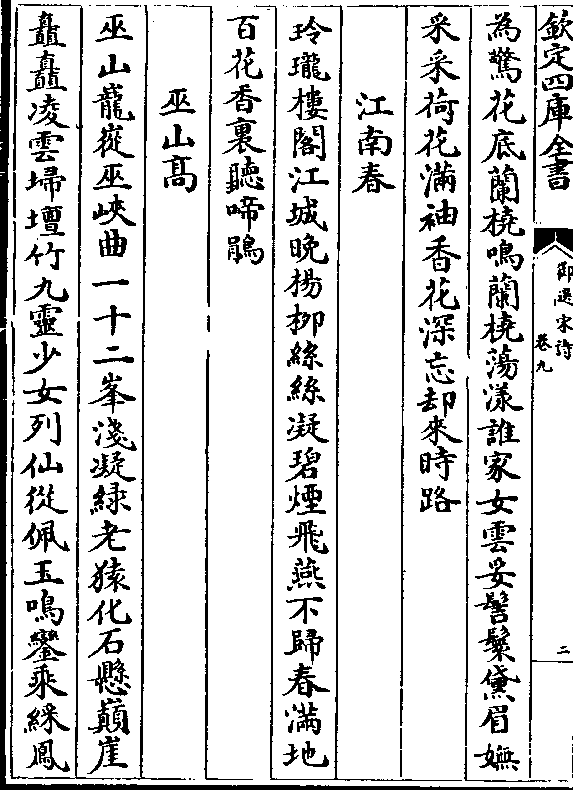 欽定四庫全書
御選宋詩
卷九
二
為驚花底蘭橈鳴蘭橈蕩漾誰家女雲妥髻鬟黛眉嫵
采采荷花滿袖香花深忘却來時路
江南春
玲瓏樓閣江城晚楊柳絲絲凝碧煙飛燕不歸春滿地
百花香裏聽啼鵑
巫山高
巫山巃嵸巫峽曲一十二峯淺凝緑老猿化石懸巔崖
矗矗凌雲埽壇竹九靈少女列仙從佩玉鳴鑾乘綵鳳